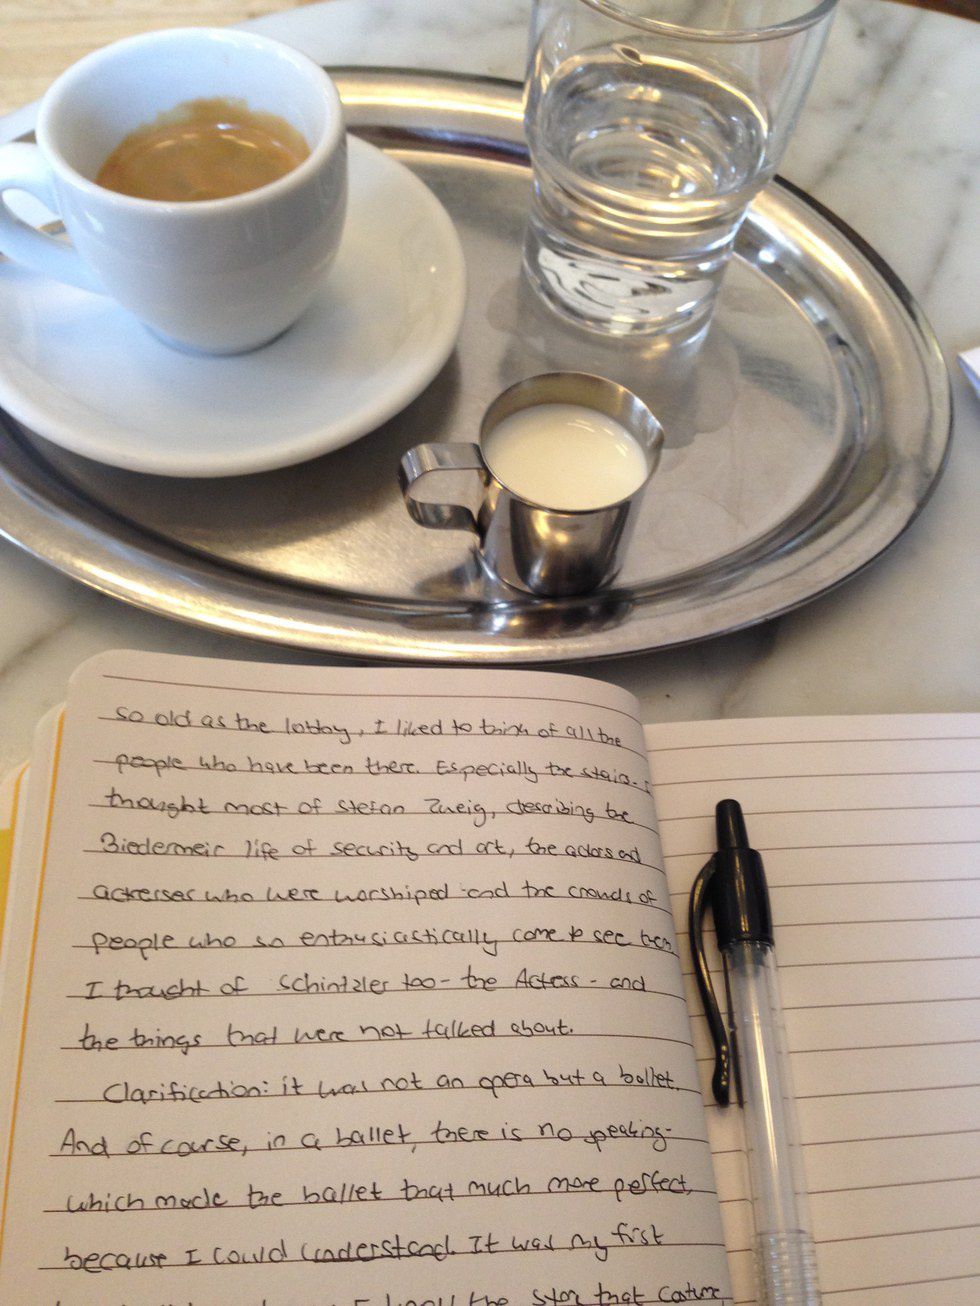 so old as the lobby, I liked to think of all the
people who have been there. Especially the stairs - I
thought most of Stefan Zweig, describing the
Biedermeir life of security and art, the actors and
actresses who were worshiped and the crowds of
people who so enthusiastically come to see them
I thought of Schintzler too - the Actess - and
the things that were not talked about.
Clarification: it was not an opera but a ballet.
And of course, in a ballet, there is no speaking -
which made the ballet that much more perfect,
because I could understand. It was my first
I the star that